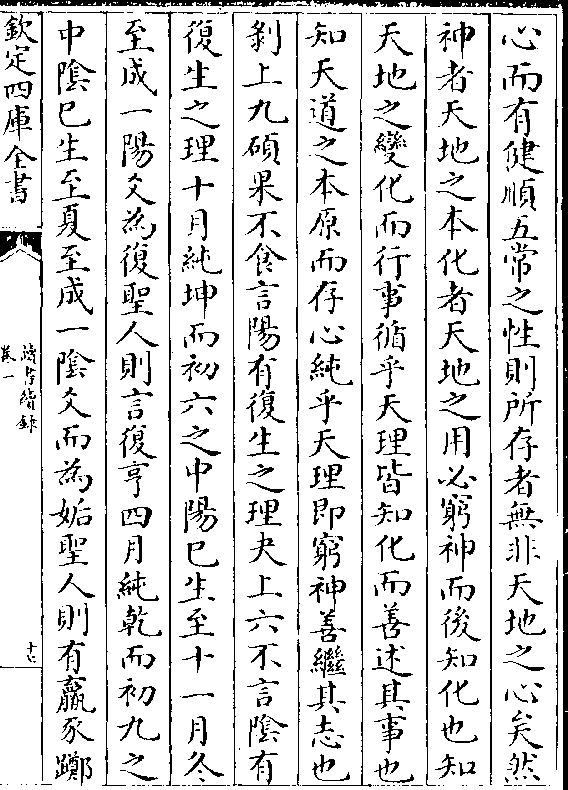 心而有健順五常之性則所存者無非天地之心矣然
神者天地之本化者天地之用必窮神而後知化也知
天地之變化而行事循乎天理皆知化而善述其事也
知天道之本原而存心純乎天理即窮神善繼其志也
剥上九碩果不食言陽有復生之理夬上六不言陰有
復生之理十月純坤而初六之中陽巳生至十一月冬
至成一陽爻為復聖人則言復亨四月純乾而初九之
中陰巳生至夏至成一陰爻而為姤聖人則有羸豕躑
欽定四庫全書
讀書續錄
卷一